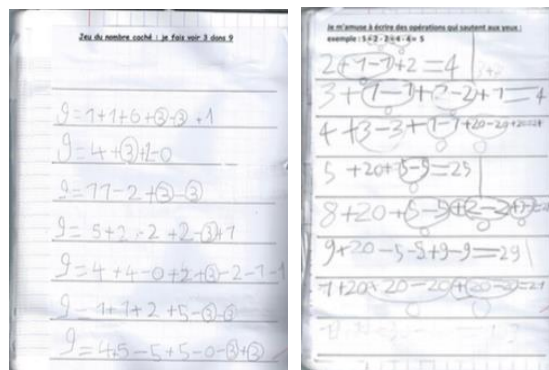 Jeu du nombre caché : je fais voir 3 dans 9
9=1+1+6+3-3+1
9=4+3+2-0
9=11-2+3-3
9=5+2-2+2-3+7
9=4+4-0+2+3-2-1-1
9=1+1+2+5-3-3
9=4+5-5+5-0-3+3
Je m'amuse à écrire des opérations qui sautent aux yeux :
exemple : 5+2-2+4-4= 5
2+1-1+2=4
3+1-1+2-2+1=4
4+3-3+1-1+20-20
5+20+5-5=25
8+20+5-5+2-2
9+20-5-5+9-9=29
1+20+20-20+20-20=21